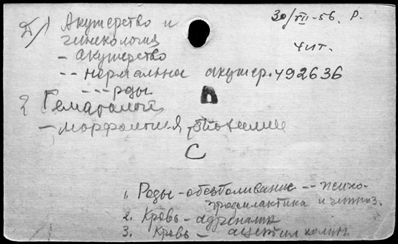 Д/1 Акушерство и
30/VII-56. Р.
гинекология
чит.
- акушерство
-- нормальное акушер. 492636
--- роды
2 Гематология
- морфология,
С
1. Роды - обезболивание -- психо-
профилактика и гипноз.
2. Кровь - адреналин
3. Кровь - ацетилхолин.